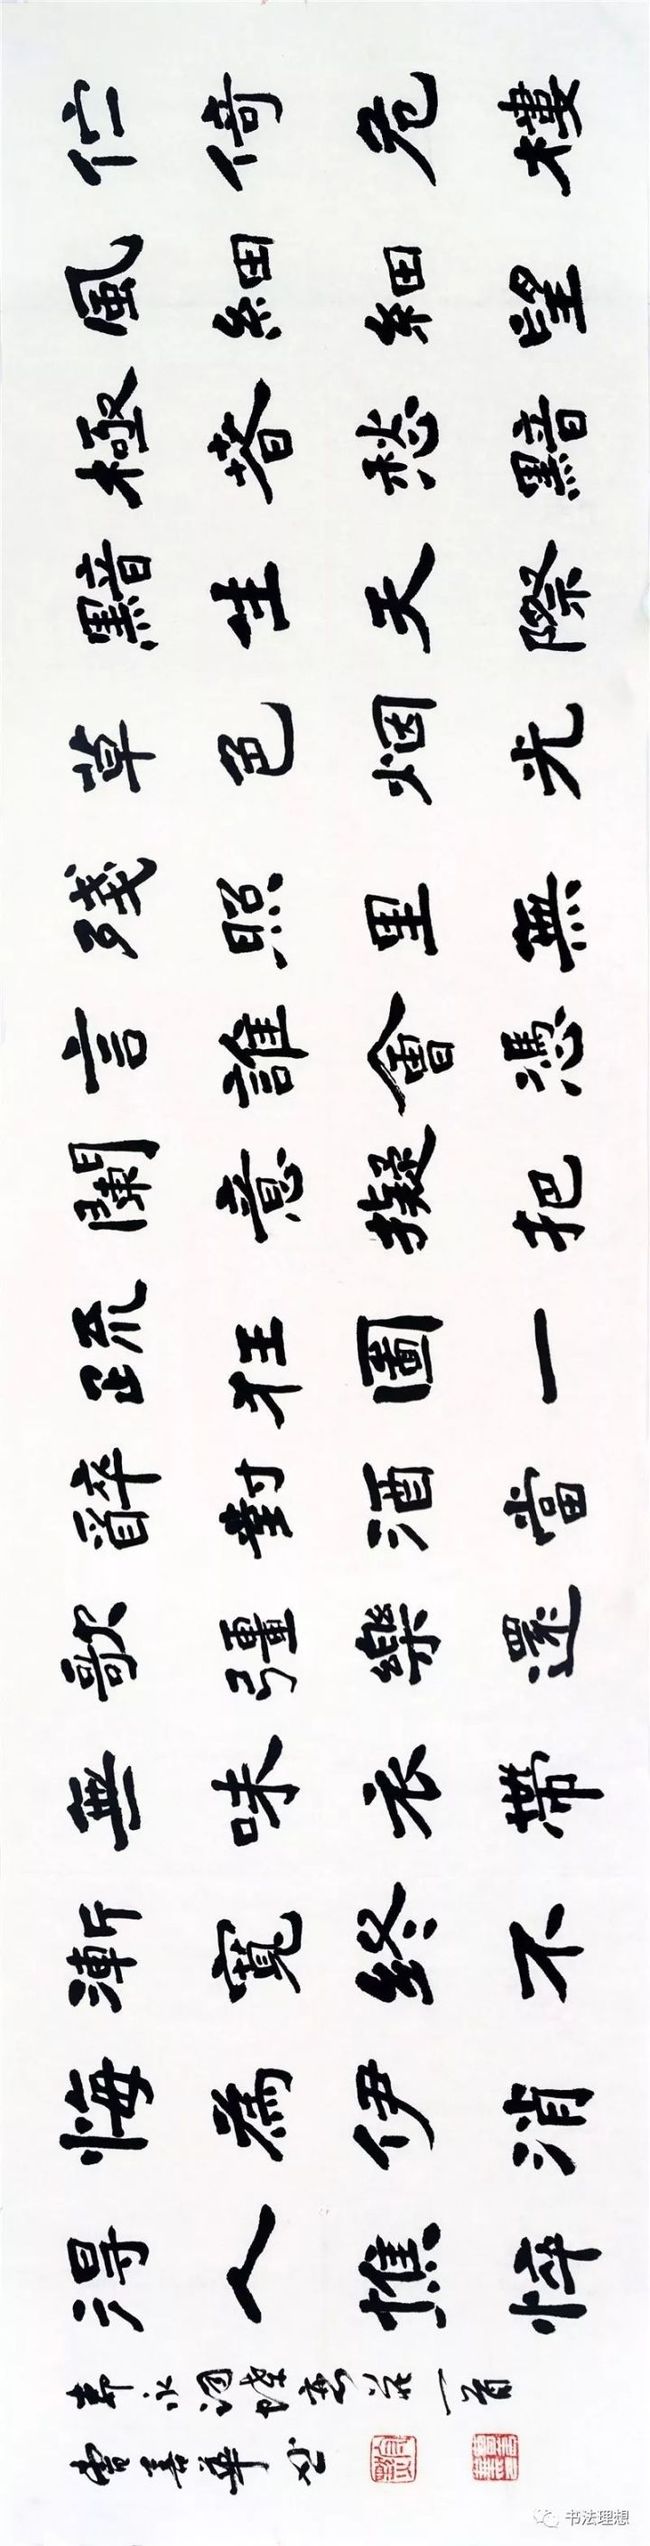 伫倚危樓
風細細望
極春愁黯
黯生天際
草色烟光
殘照里無
言誰會憑
闌意擬把
疏狂圖一
醉對酒當
歌彊樂還
無味衣帶
漸寬終不
悔為伊消
得人憔悴
柳永詞蝶恋花一首
书
书法理想